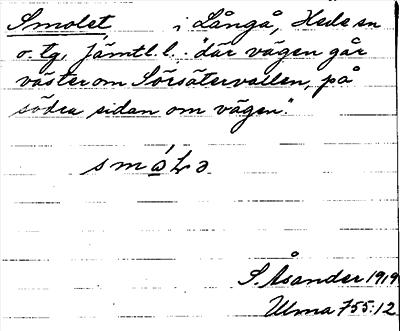 Smolet, i Långå, Hede sn
o. tg, Jämtl. l. "där vägen går
väster om Sörsätervallen, på
södra sidan om vägen".
S. Åsander 1919
Ulma 755:12